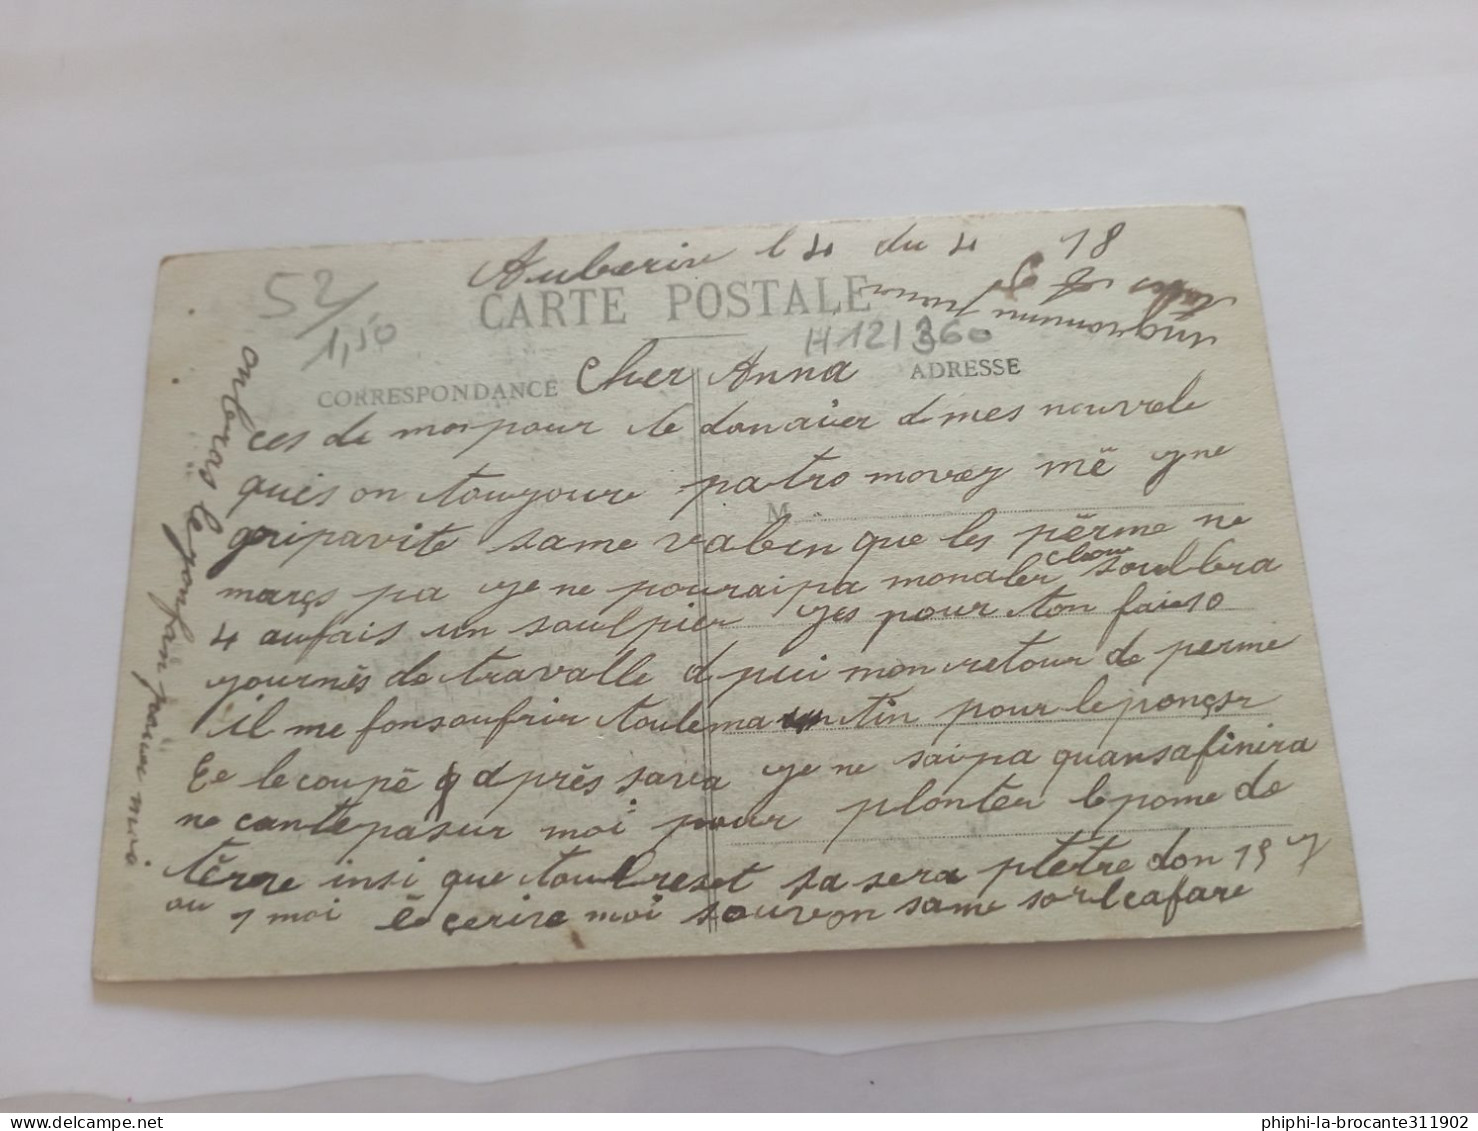 Auberive l 4 du 4 18
CARTE POSTALE
52/
1,50
H121360
CORRESPONDANCE
Cher Anna
ADRESSE
ces de moi pour te donaier d mes nouvele
quies on toujoure pa tro movez më yne
M
gripavite same vaben que les përme ne
març pa ye ne pouraipa monaler chou soul lera
4 aufais un soulpier yes pour ton fai 10
journës de travalle d puи mon retour de perme
il me fon soufrir toulema tin pour le ponçer
Ee le coupë d près sava ye ne saipa quansafinira
ne cante pa sur moi pour plonter le pome de
tërre insi que toul reset sa sera ptetre don 15 y
ou 1 moi ëeçerire moi souvon same sorl cafare
on lenbras le yonfan pour moi
phiphi-la-brocante311902